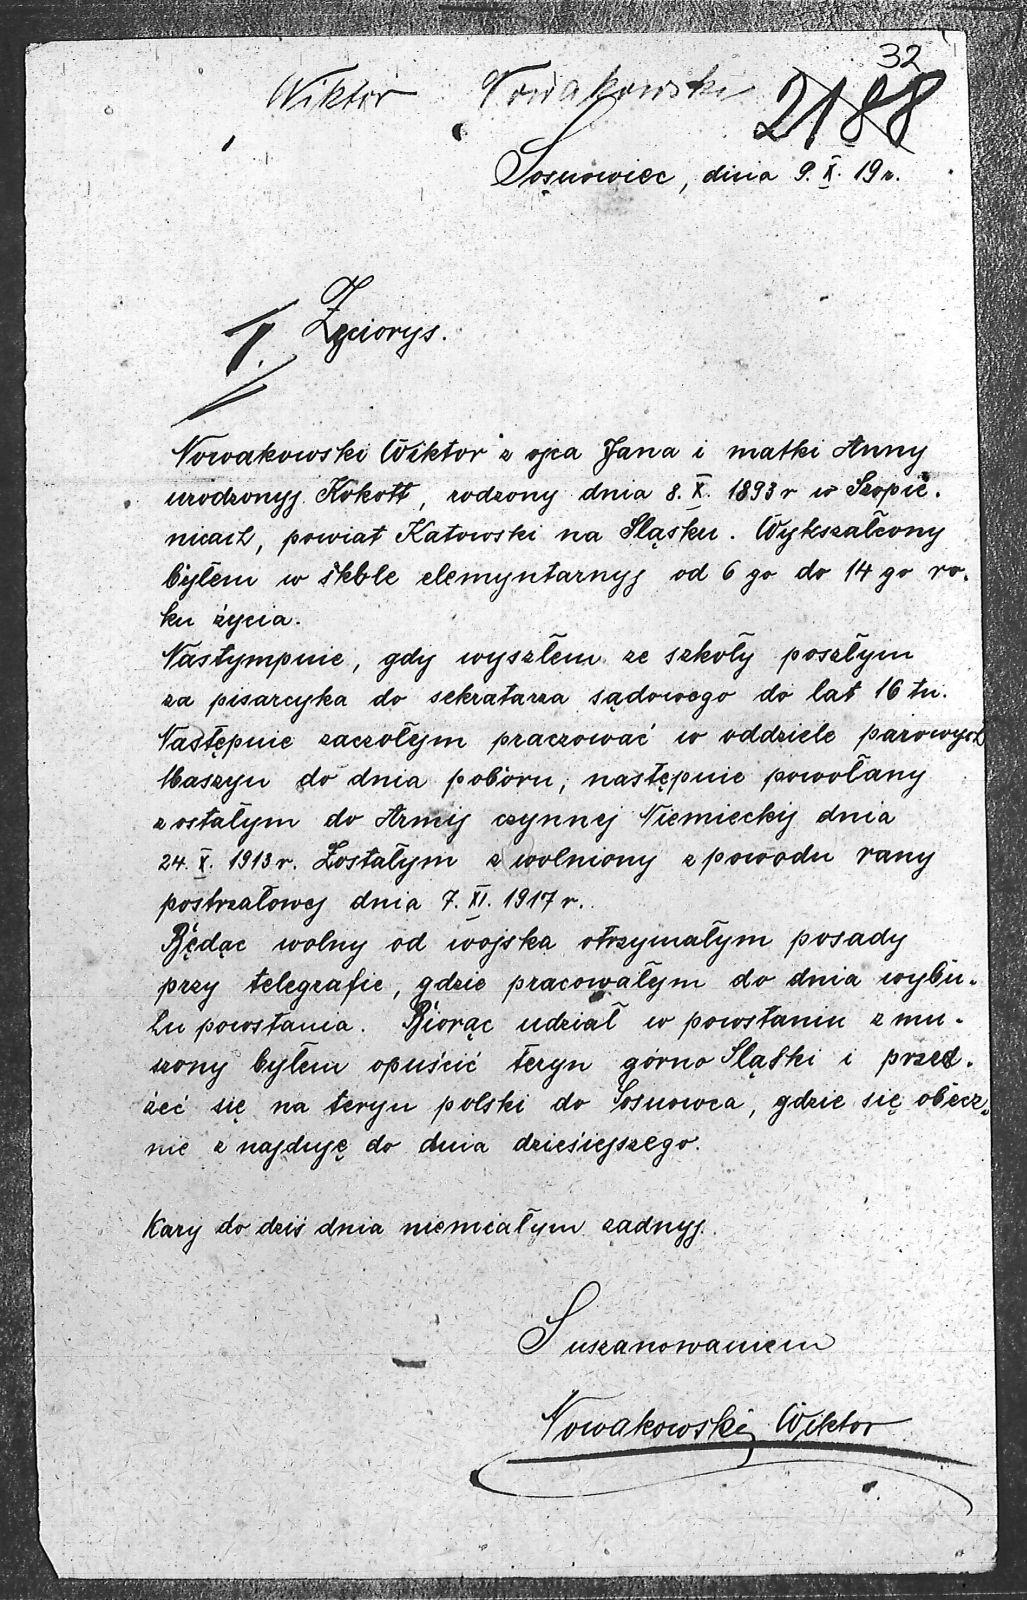 32
Wiktor Nowakowski
2188
Sosnowiec, dnia 9. X. 19 r.
Życiorys.
Nowakowski Wiktor z ojca Jana i matki Anny
urodzonyj Kokott, rodzony dnia 8. X. 1893 r w Szopie-
nicach, powiat Katowski na Sląsku. Wykszałcony
byłem w škole elemyntarnyj od 6 go do 14 go ro-
ku życia.
Nastympnie, gdy wyszłem ze szkoły poszłym
za pisarcyka do sekratarza sądowego do lat 16 tu.
Następnie zaczołym praczować w oddziele parowych
Maszyn do dnia poboru, następnie powołany
zostałym do Armij czynnej Niemieckij dnia
24. X. 1913 r. Zostałym zwolniony z powodu rany
postrzałowej dnia 7. XI. 1917 r.
Będąc wolny od wojska otrzymałym posady
przy telegrafie, gdzie pracowałym do dnia wybu-
hu powstania. Biorąc udział w powstaniu zmu-
szony byłem opuścić teryn górno Sląski i przed-
żeć się na teryn polski do Sosnowca, gdzie się obecz-
nie znajduję do dnia dzieśiejszego.
Kary do dziś dnia niemiałym żadnyj.
S uszanowaniem
Nowakowski Wiktor